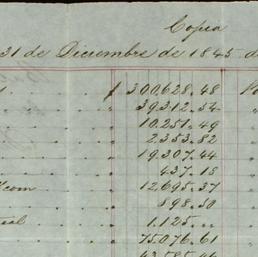 Copia
31 de Diciembre de 1845 d
$ 300,628.48
39,312.54
10.251.49
2353.82
19,307.44
437.15
com 12,695.37
898.50
ial 1.125.„
75,076.61
43585.46